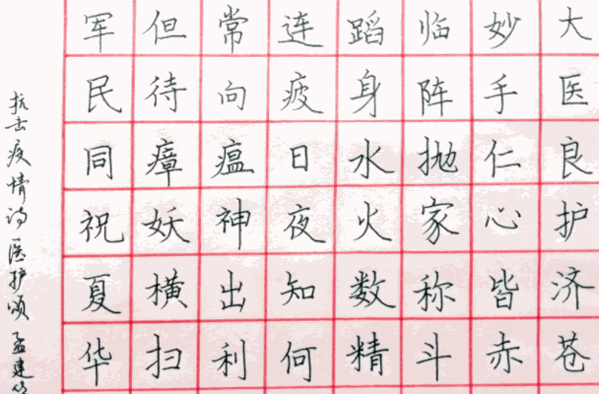 大医良护济苍
妙手仁心皆赤
临阵抛家称斗
蹈身水火数精
连疲日夜知何
常向瘟神出利
但待瘴妖横扫
军民同祝夏华
抗击疫情诗医护颂 孟建